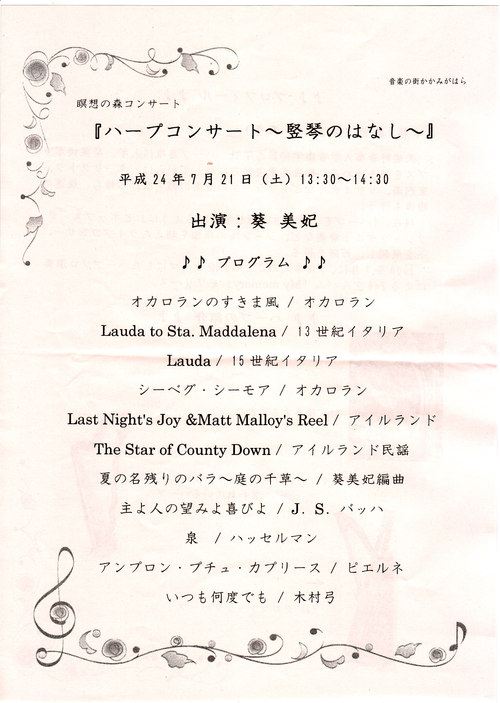 音楽の街かかみがはら
瞑想の森コンサート
『ハープコンサート～竪琴のはなし～』
平成24年7月21日（土）13:30～14:30
出演：葵 美妃
♪♪ プログラム ♪♪
オカロランのすきま風 / オカロラン
Lauda to Sta. Maddalena / 13世紀イタリア
Lauda / 15世紀イタリア
シーベグ・シーモア / オカロラン
Last Night's Joy &Matt Malloy's Reel / アイルランド
The Star of County Down / アイルランド民謡
夏の名残りのバラ～庭の千草～ / 葵美妃編曲
主よ人の望みよ喜びよ / J. S. バッハ
泉 / ハッセルマン
アンプロン・プチュ・カプリース / ピエルネ
いつも何度でも / 木村弓